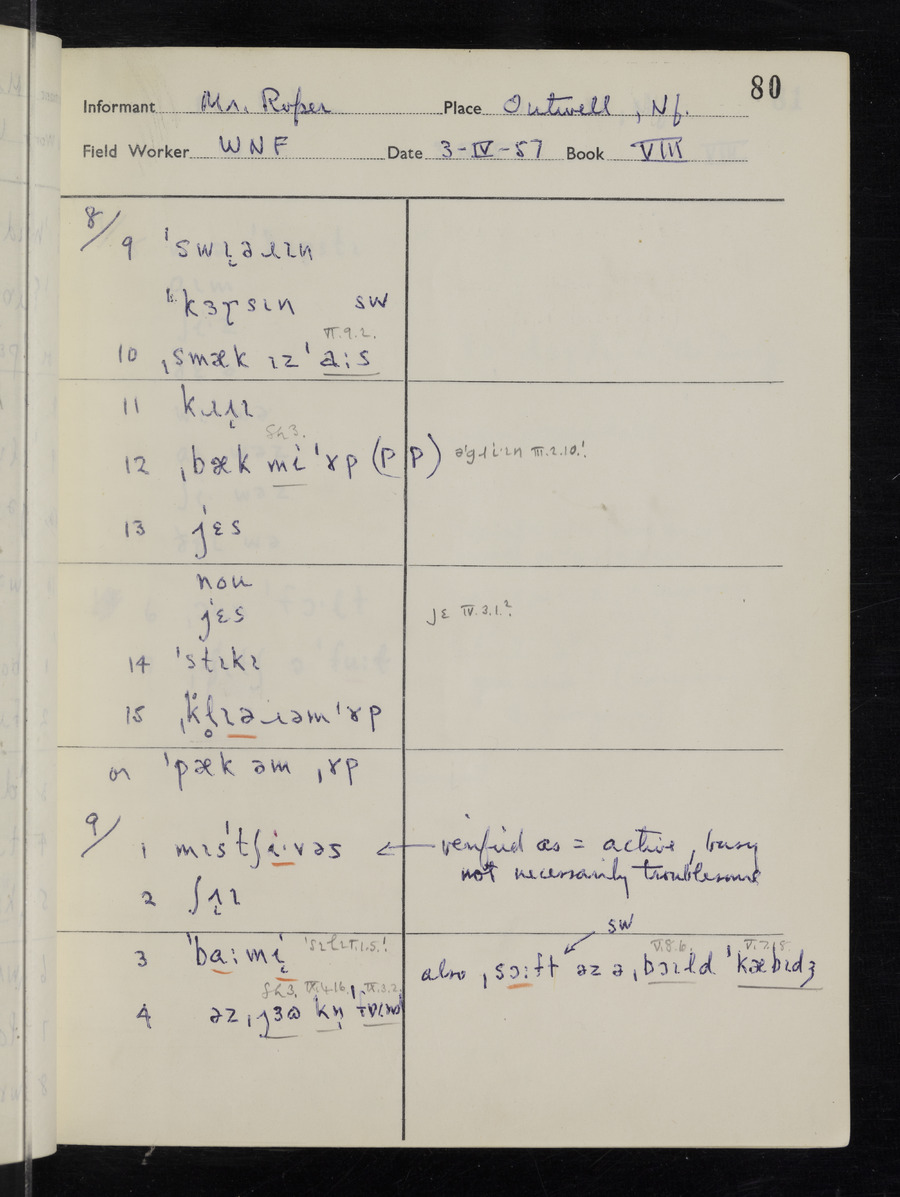 80
Informant Mr. Roper Place Outwell, Nf.
Field Worker WNF Date 3-IV-57 Book VIII
8/
9 ˈswɪ̨əɹɪn
ˈkɜɽsɪn sw
VI.9.2.
10 ˌsmæk ɪz ˈaːs
11 kɹɪ̨ɪ
§h3.
12 ˌbæk mi ˈɤp (p p) əˈgɹiˑɪn III.2.10.!
13 jɛs
nou
jɛs jɛ IV.3.1.?
14 ˈstɪkɪ
15 ˌkl̥ɪəɹəm ˈɤp
or ˈpæk əm ˌɤp
9/
1 mɪsˈtʃiˑvəs ← verified as = active, busy
not necessarily troublesome
2 ʃɪ̨ɪ
sw
3 ˈbaːmi̜
also ˌsɔːft əz ə ˌbɔɪɫd ˈkæbɪdʒ
V.8.6. V.7.18.
4 əz ˌjɜʊ kn̩